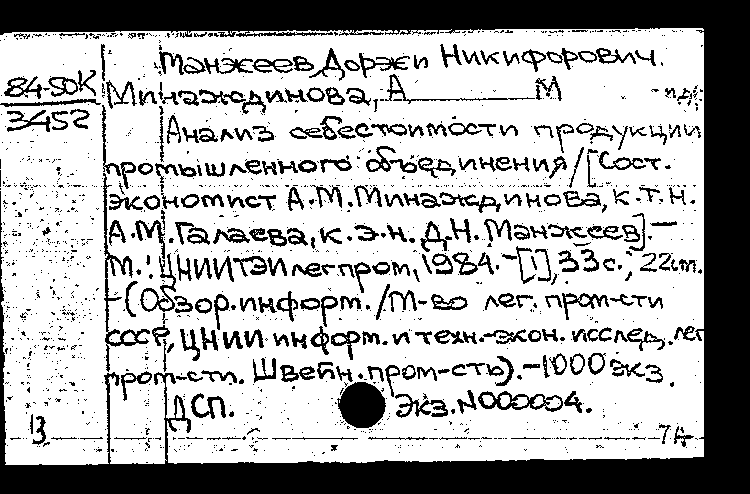 Манжеев, Доржи Никифорович.
84-50К
3452
Минаждинова, А М
Анализ себестоимости продукции
промышленного объединения / [Сост.
экономист А.М. Минаждинова, к.т.н.
А.М. Галаева, к.э.н. Д.Н. Манжеев]. —
М.: ЦНИИТЭИлегпром, 1984. - [1], 33 с.; 22 см.
- (Обзор. информ. / М-во лег. пром-сти
СССР, ЦНИИ информ. и техн.-экон. исслед. лег
пром-сти. Швейн. пром-сть). - 1000 экз.
ДСП. Экз. N000004.